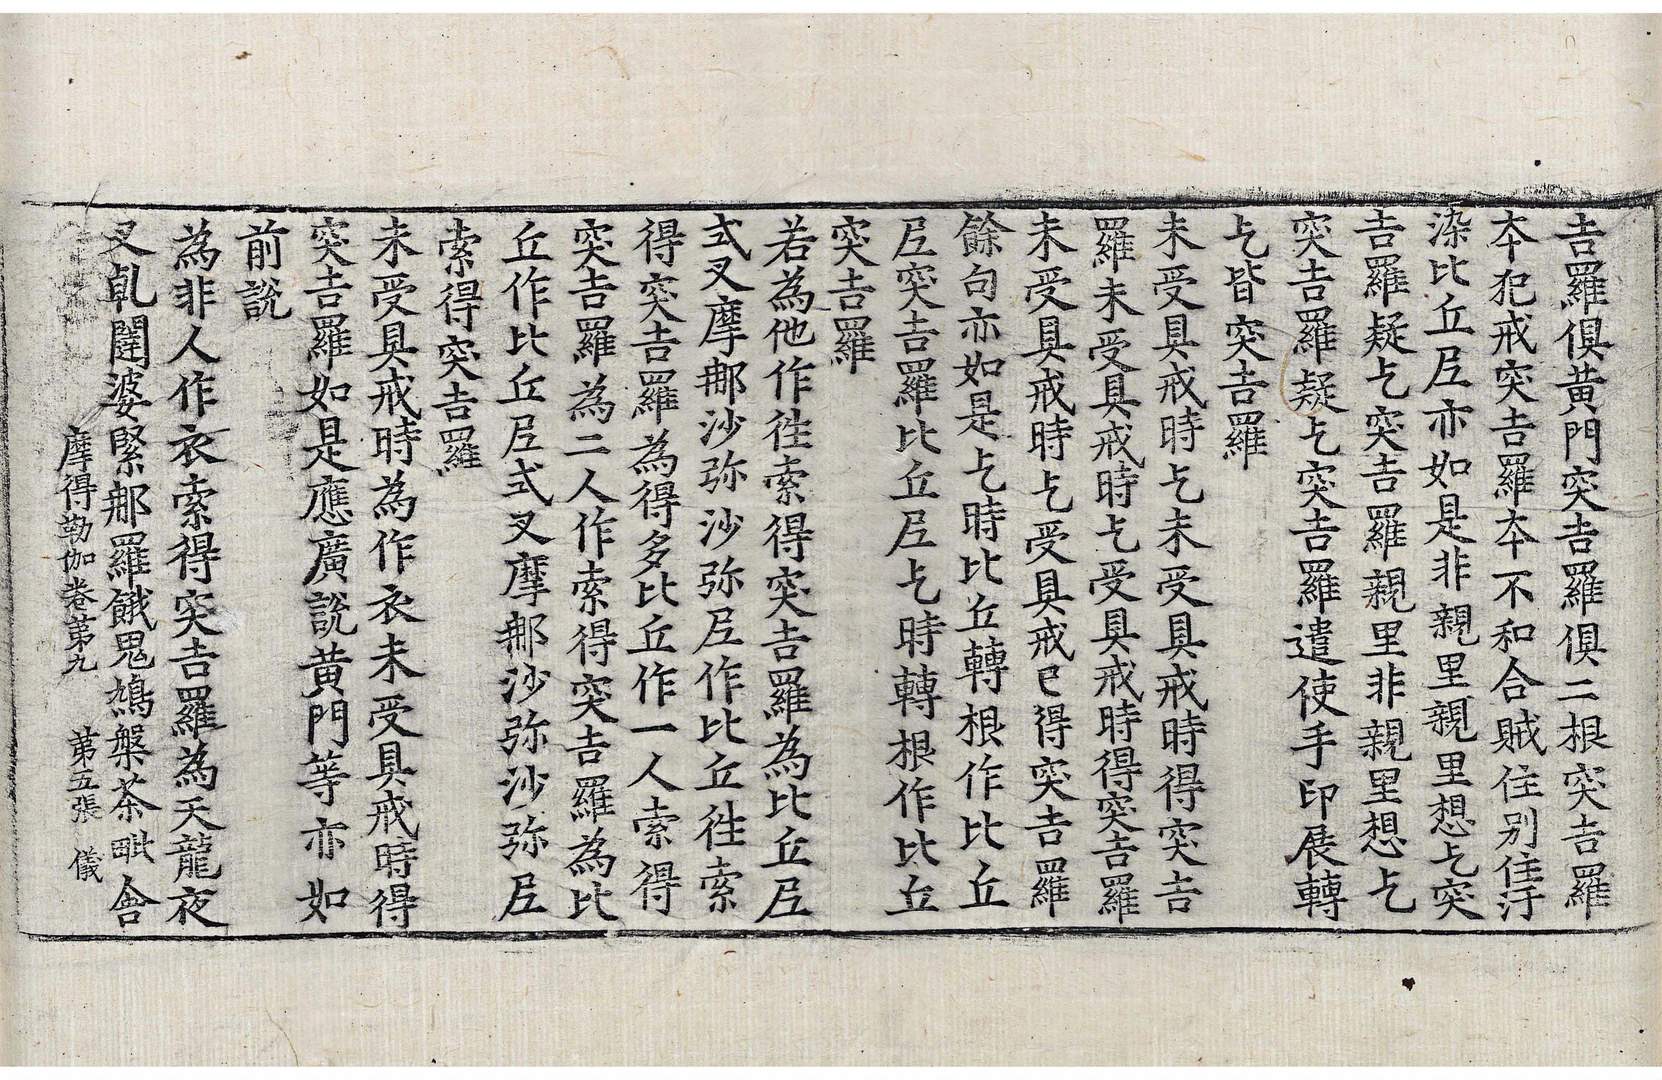 吉羅俱黃門突吉羅俱二根突吉羅
本犯戒突吉羅本不和合賊住別住汙
染比丘尼亦如是非親里親里想乞突
吉羅疑乞突吉羅親里非親里想乞
突吉羅疑乞突吉羅遣使手印展轉
乞皆突吉羅
未受具戒時乞未受具戒時得突吉
羅未受具戒時乞受具戒時得突吉羅
未受具戒時乞受具戒已得突吉羅
餘句亦如是乞時比丘轉根作比丘
尼突吉羅比丘尼乞時轉根作比丘
突吉羅
若為他作徃索得突吉羅為比丘尼
式叉摩那沙弥沙弥尼作比丘徃索
得突吉羅為得多比丘作一人索得
突吉羅為二人作索得突吉羅為比
丘作比丘尼式叉摩那沙弥沙弥尼
索得突吉羅
未受具戒時為作衣未受具戒時得
突吉羅如是應廣說黃門等亦如
前說
為非人作衣索得突吉羅為天龍夜
叉乹闥婆緊那羅餓鬼鳩槃茶毗舎
摩得勒伽卷第九 第五張 儀